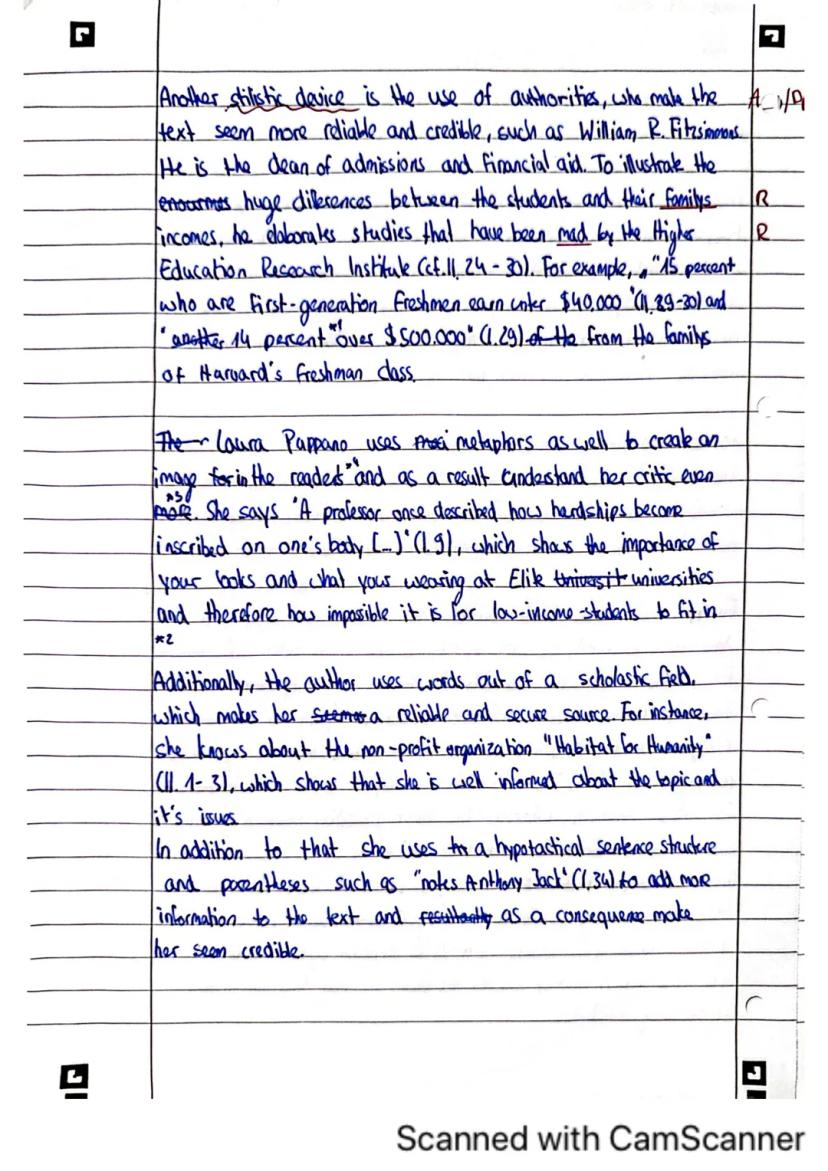 Another stilistic device is the use of authorities, who make the
text seem more reliable and credible, such as William R. Fitzsimmons.
He is the dean of admissions and financial aid. To illustrate the
enourmes huge differences between the students and their familys R
incomes, he elaborates studies that have been mad by the Higher R
Education Research Institute (cf. ll. 24 - 30). For example, "15 percent
who are first-generation freshmen earn unter $40,000" (ll. 29-30) and
"another 14 percent" *1 "over $500.000" (l. 29) of the from the familys
of Harvard's freshman class.
The Laura Pappano uses metaphors as well to create an
image for in the readed *4 and as a result understand her critic even
*3
more. She says "A professor once described how hardships become
inscribed on one's body [...]" (l. 9), which shows the importance of
your looks and what your wearing at Elite Universit universities
and therefore how impossible it is for low-income-students to fit in
*2
Additionally, the author uses words out of a scholastic field,
which makes her a reliable and secure source. For instance,
she knows about the non-profit organization "Habitat for Humanity"
(ll. 1- 3), which shows that she is well informed about the topic and
it's issues
In addition to that she uses a hypotactical sentence structure
and parentheses such as "notes Anthony Jack" (l. 34) to add more
information to the text and resultantly as a consequence make
her seem credible.
Scanned with CamScanner